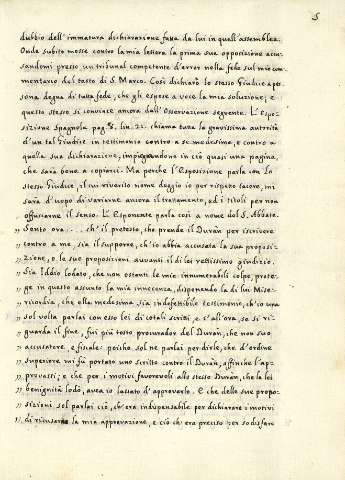 5
dubbio dell'immatura dichiarazione fatta da lui in quell'assemblea.
Onde subito mosse contro la mia lettera la prima sua opposizione accu-
sandomi presso un tribunal competente d'error nella fede sul mio com-
mentario del testo di S. Marco. Così dichiarò lo stesso Giudice a per-
sona degna di tutta fede, che gli espose a voce la mia soluzione; e
questo stesso si convince ancora dall'Osservazione seguente. L'Espo-
sizione Spagnola pag. 8. lin. 22. chiama tuna la gravissima autorità
d'un tal Giudice in testimonio contro a se medesima, e contro a
quella sua dichiarazione, impiegandone in ciò quasi una pagina,
che sarà bene a copiarci. Ma perchè l'Esposizione parla con lo
stesso Giudice, il cui riverito nome deggio io per rispetto tacere, mi
sarà d'uopo di variarne ancora il trattamento, ed i titoli per non
offuscarne il senso. L'Esponente parla così a nome del S. Abbate.
Sento ora .... ch'il pretesto, che prende il Duràn per iscrivere
contro a me, sia il supporre, ch'io abbia accusata la sua proposi-
zione, o le sue proposizioni avanti il di lei rettissimo giudizio.
„ Sia Iddio lodato, che non ostanti le mie innumerabili colpe, prote-
„ ge in questo assunto la mia innocenza, disponendo la di lui Mise-
„ ricordia, che ella medesima, sia indefettibile testimonio, ch'io una
„ sol volta parlai con esso lei di cotali scritti, e ch'all'ora, se si ri-
„ guarda il fine, fui più tosto procurador del Duràn, che non suo
„ accusatore, e fiscale: poichè sol ne parlai per dirle, che d'ordine
„ superiore mi fù portato uno scritto contro il Duràn, affinchè l'ap-
„ provassi; e che per i motivi favorevoli allo stesso Duràn, che la lei
„ benignità lodò, avea io lasciato d'approvarlo. E che delle sue propo-
„ sizioni sol parlai ciò, ch'era indispensabile per dichiarare i motivi
„ di ricusarne la mia approvazione, e ciò ch'era preciso per sodisfare